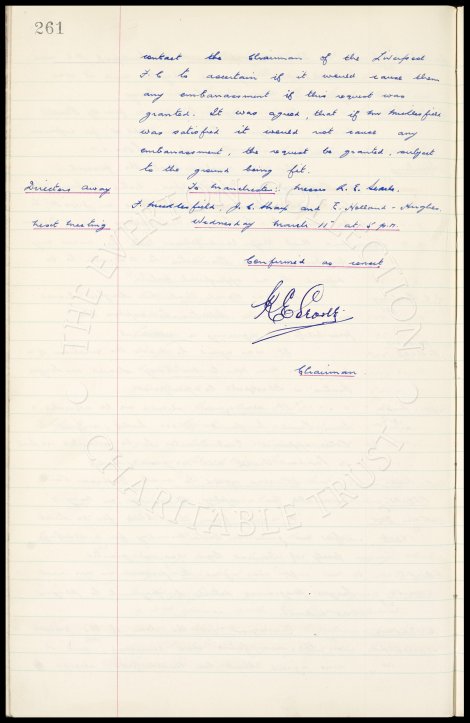 261
contact the Chairman of the Liverpool
F.C to ascertain if it would cause them
any embarrassment if this request was
granted. It was agreed, that if Mr Micklesfield
was satisfied it would not cause any
embarrassment, the request be granted, subject
to the ground being fit.
Directors away To Manchester: Messrs R. E. Searle.
F. Micklesfield. J. C. Sharp and E. Holland-Hughes.
Next meeting Wednesday March 11th at 5 p.m.
Confirmed as correct
Chairman.
THE EVERTON COLLECTION
CHARITABLE TRUST